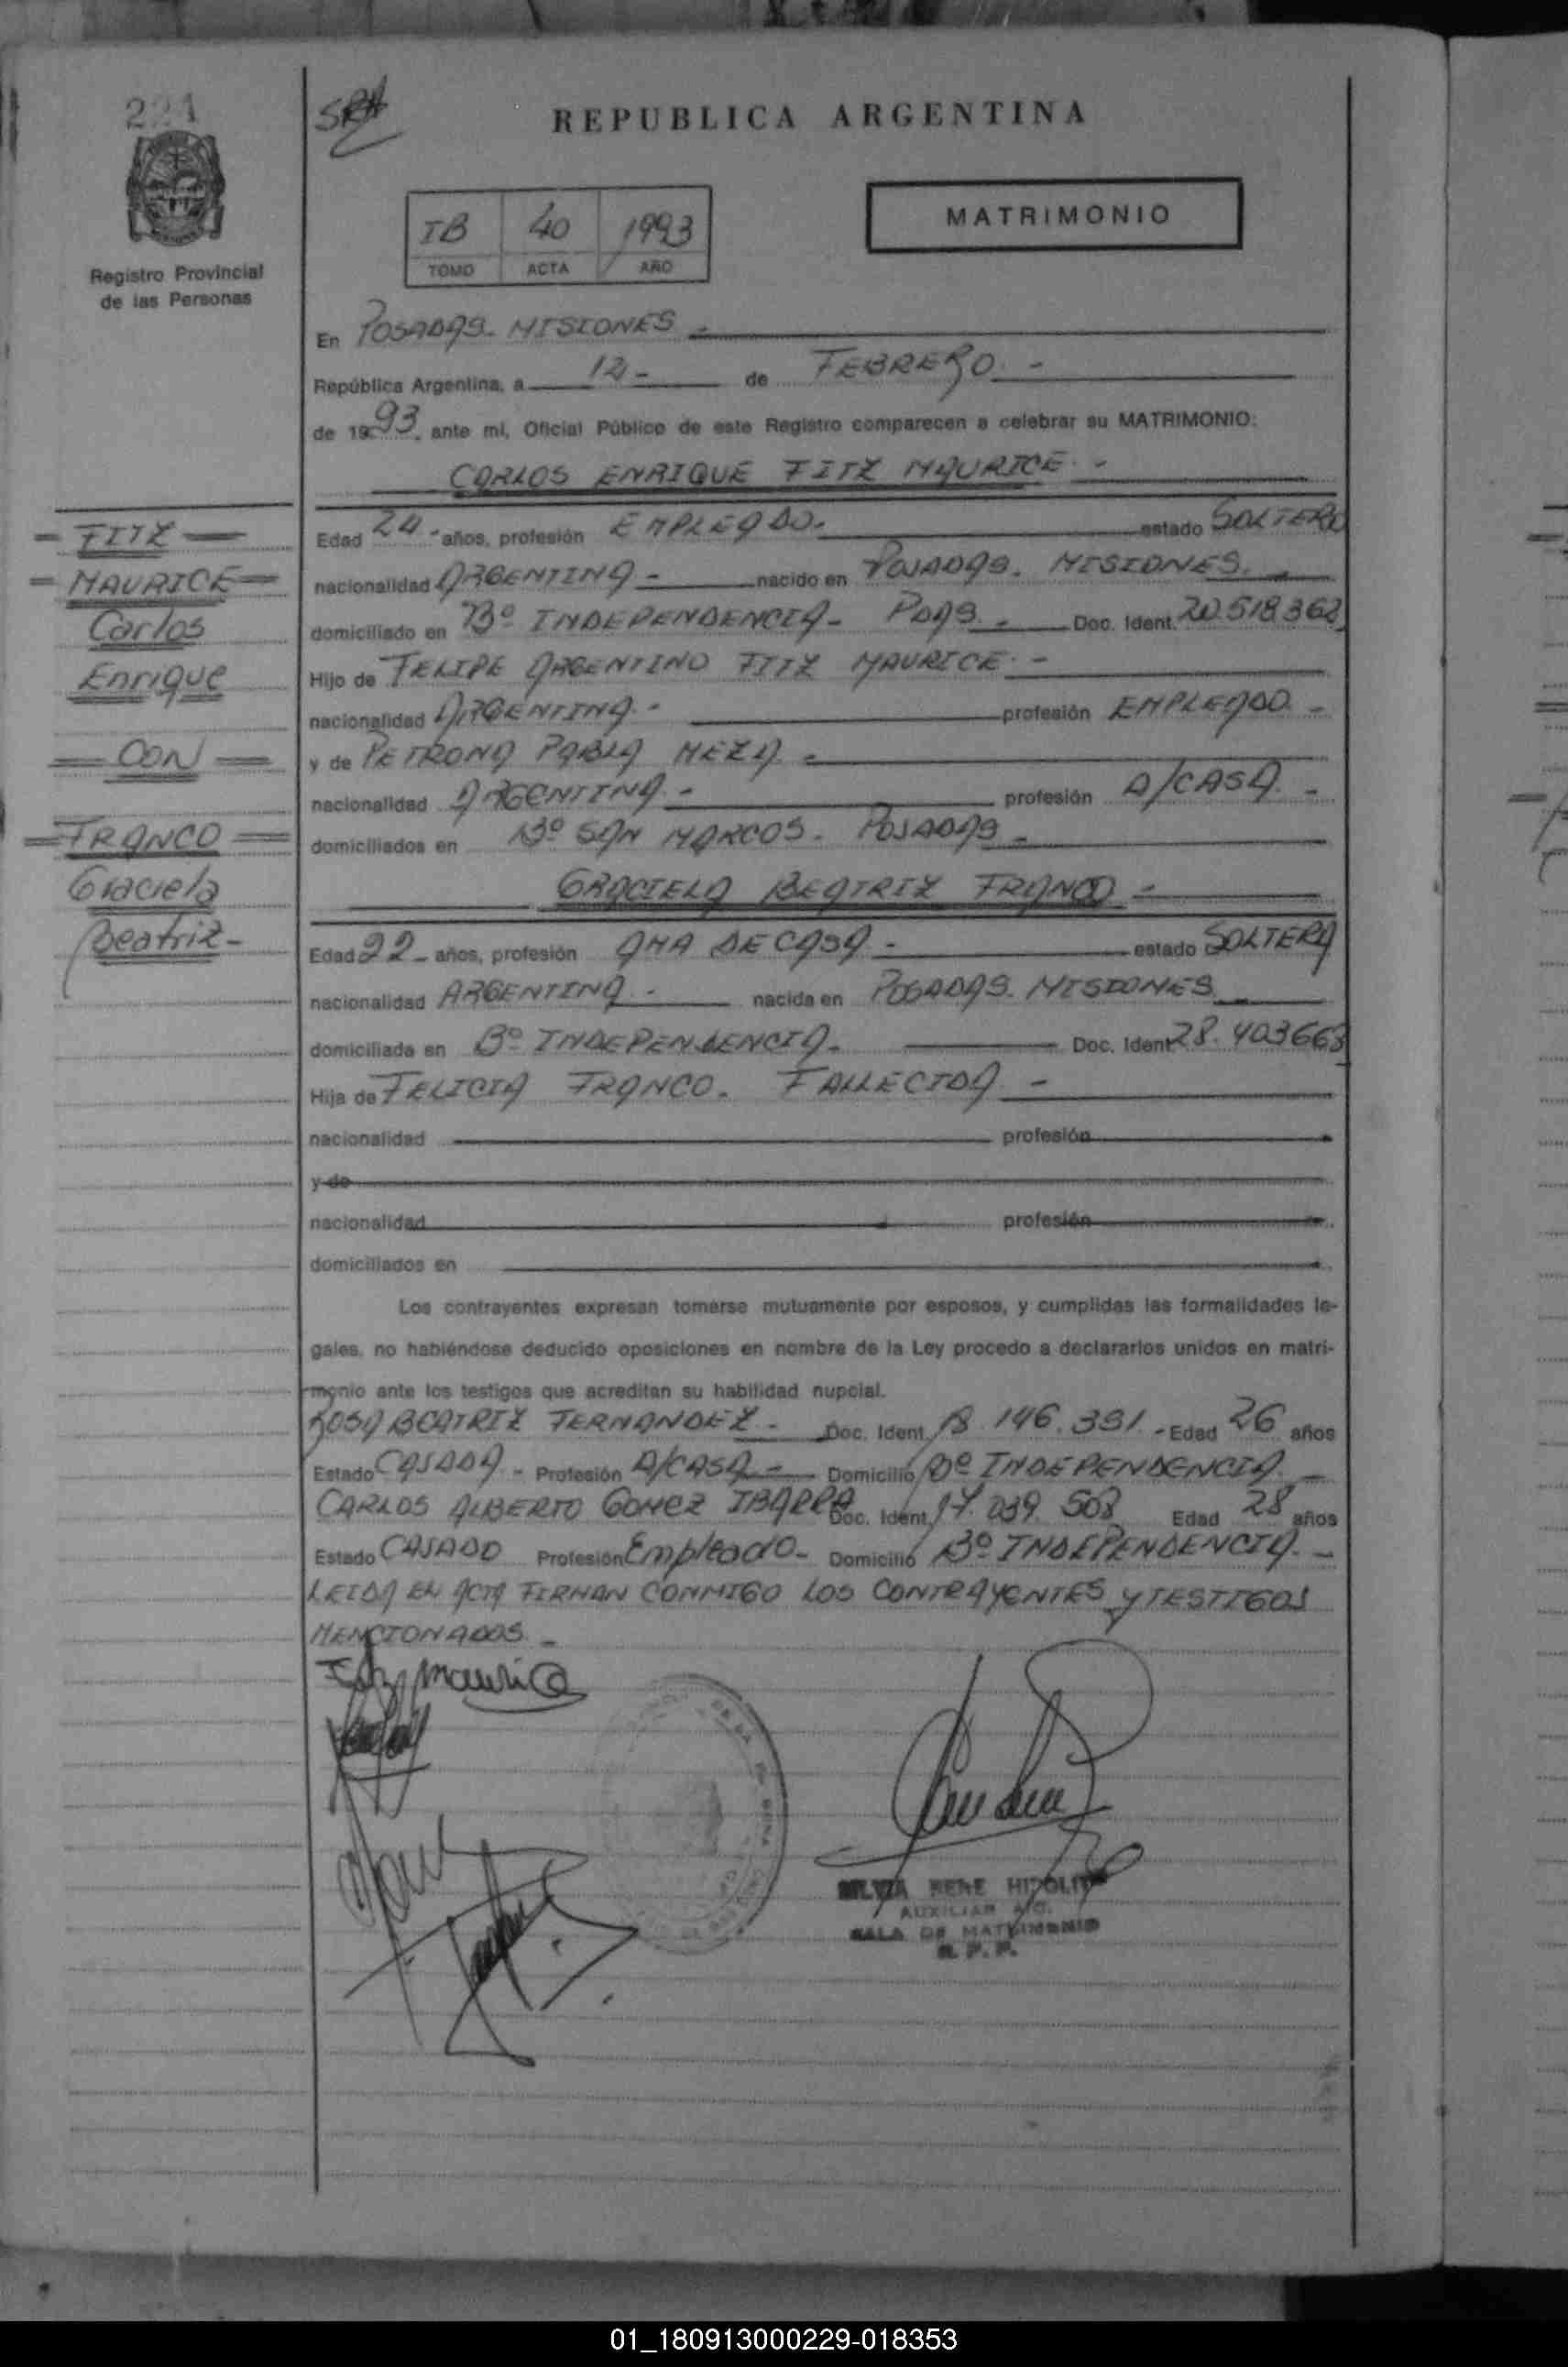 221
SRA
REPUBLICA ARGENTINA
IB 40 1993
TOMO ACTA AÑO
MATRIMONIO
Registro Provincial
de las Personas
En POSADAS - MISIONES -
República Argentina, a 12 - de FEBRERO -
de 1993, ante mí, Oficial Público de este Registro comparecen a celebrar su MATRIMONIO:
CARLOS ENRIQUE FITZ MAURICE -
= FITZ =
= MAURICE =
Carlos
Enrique
= CON =
= FRANCO =
Graciela
Beatriz -
Edad 24 - años, profesión EMPLEADO - estado SOLTERO
nacionalidad ARGENTINA - nacido en POSADAS. MISIONES. -
domiciliado en Bº INDEPENDENCIA - PDAS. - Doc. Ident. 20.518.362
Hijo de FELIPE ARGENTINO FITZ MAURICE -
nacionalidad ARGENTINA - profesión EMPLEADO -
y de PETRONA PABLA MEZA -
nacionalidad ARGENTINA - profesión A/CASA -
domiciliados en Bº SAN MARCOS - POSADAS -
GRACIELA BEATRIZ FRANCO -
Edad 22 - años, profesión AMA DE CASA - estado SOLTERA
nacionalidad ARGENTINA - nacida en POSADAS. MISIONES
domiciliada en Bº INDEPENDENCIA - Doc. Ident. 28.403663
Hija de FELICIA FRANCO. FALLECIDA -
nacionalidad profesión
y de
nacionalidad profesión
domiciliados en
Los contrayentes expresan tomarse mutuamente por esposos, y cumplidas las formalidades le-
gales, no habiéndose deducido oposiciones en nombre de la Ley procedo a declararlos unidos en matri-
monio ante los testigos que acreditan su habilidad nupcial.
ROSA BEATRIZ FERNANDEZ - Doc. Ident. 18.146.391 - Edad 26 años
Estado CASADA - Profesión A/CASA - Domicilio Bº INDEPENDENCIA -
CARLOS ALBERTO GOMEZ IBARRA Doc. Ident. 17.039.508 Edad 28 años
Estado CASADO Profesión Empleado - Domicilio Bº INDEPENDENCIA -
LEIDA EL ACTA FIRMAN CONMIGO LOS CONTRAYENTES Y TESTIGOS
MENCIONADOS -
Fitz Maurice
SILVIA RENE HIPOLITO
AUXILIAR
SALA DE MATRIMONIO
R. P. P.
01_180913000229-018353